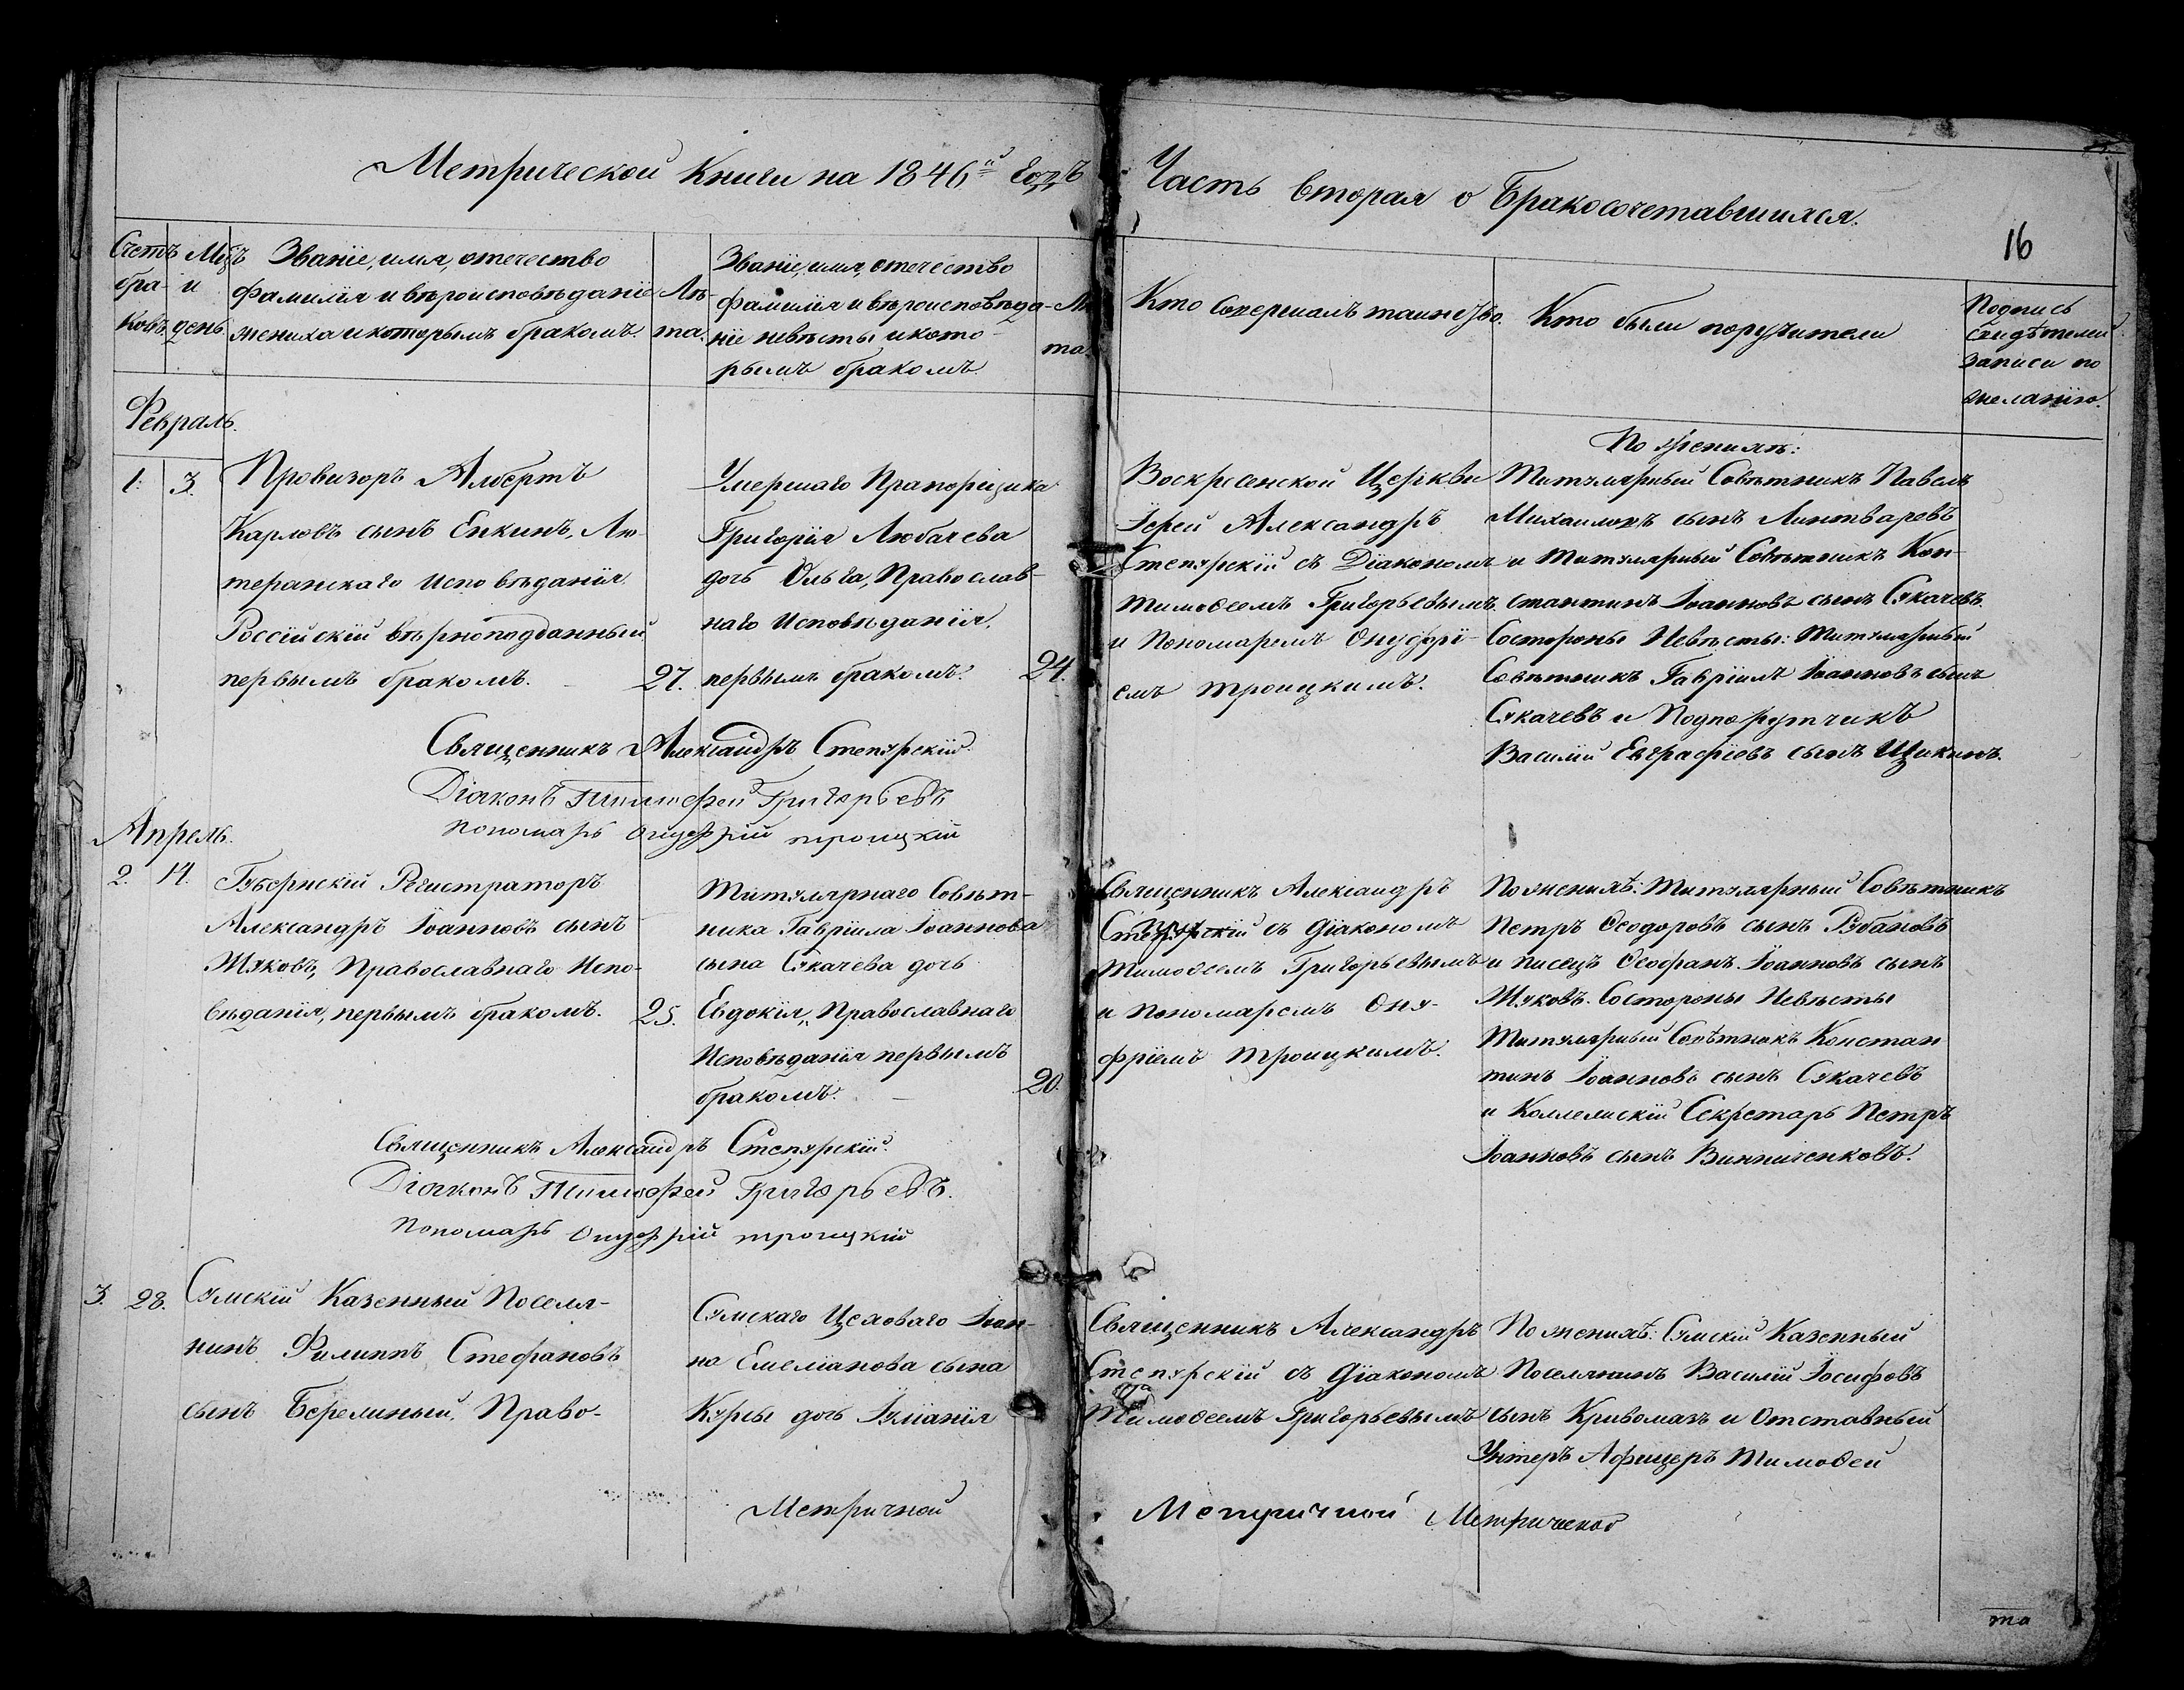 Метрической Книги на 1846й Годъ
Часть вторая о Бракосочетавшихся.
16
Счетъ бра-ковъ
Мцъ и день
Званіе, имя, отечество
фамилія и вѣроисповѣданіе
жениха и которымъ бракомъ.
Лѣ-
та.
Званіе, имя, отечество
фамилія и вѣроисповѣда-
ніе невѣсты и кото-
рымъ бракомъ.
Лѣ
та
Кто совершалъ таинство.
Кто были поручители
Подпись
свидѣтелей
записи по
желанію.
Февраль.
1. 3.
Провизоръ Албертъ
Карловъ сынъ Енкинъ, Лю-
теранскаго Исповѣданія
Россійскій вѣрноподданный
первымъ бракомъ. 27.
Умершаго Прапорщика
Григорія Любачева
дочь Ольга, Православ-
наго Исповѣданія,
первымъ бракомъ. 24.
Воскресенской Церкви
Іерей Александръ
Степурскій съ Діакономъ
Тимоѳеемъ Григорьевымъ
и Пономаремъ Онуфрі-
емъ Троицкимъ.
По женихѣ:
Титулярный Совѣтникъ Павелъ
Михаиловъ сынъ Линтваревъ
и Титулярный Совѣтникъ Кон-
стантинъ Іоанновъ сынъ Сукачевъ.
Состороны Невѣсты: Титулярный
Совѣтникъ Гавріилъ Іоанновъ сынъ
Сукачевъ и Подпорутчикъ
Василій Евграфіевъ сынъ Щикинъ.
Священникъ Александръ Степурскій.
Діаконъ Тимофей Григорьевъ
Пономарь Онуфрій Троицкій
Апрель.
2. 14.
Губернскій Регистраторъ
Александръ Іоанновъ сынъ
Жуковъ, Православнаго Испо-
вѣданія, первымъ бракомъ. 25.
Титулярнаго Совѣт-
ника Гавріила Іоаннова
сына Сукачева дочь
Евдокія, Православнаго
Исповѣданія первымъ
бракомъ. 20.
Священникъ Александръ
Степурскій съ Діакономъ
Тимоѳеемъ Григорьевымъ
и Пономаремъ Ону-
фріемъ Троицкимъ.
По женихѣ: Титулярный Совѣтникъ
Петръ Ѳеодоровъ сынъ Рубановъ
и писецъ Ѳеофанъ Іоанновъ сынъ
Жуковъ. Состороны Невѣсты
Титулярный Совѣтникъ Констан
тинъ Іоанновъ сынъ Сукачевъ
и Коллежскій Секретарь Петръ
Іоанновъ сынъ Винниченковъ.
Священникъ Александръ Степурскій.
Діаконъ Тимофей Григорьевъ.
Пономарь Онуфрій Троицкій
3. 28.
Сумскій Казенный Поселя-
нинъ Филиппъ Стефановъ
сынъ Бережный, Право-
Сумскаго Цеховаго Іоан-
на Емеліанова сына
Куры дочь Іуліанія
Священникъ Александръ
Степурскій съ Діакономъ
Тимоѳеемъ Григорьевымъ
По женихѣ: Сумскій Казенный
Поселянинъ Василій Іосифовъ
сынъ Кривомазъ и Отставный
Унтеръ Афицеръ Тимоѳей
Метричной
Метричной
Метрической
та